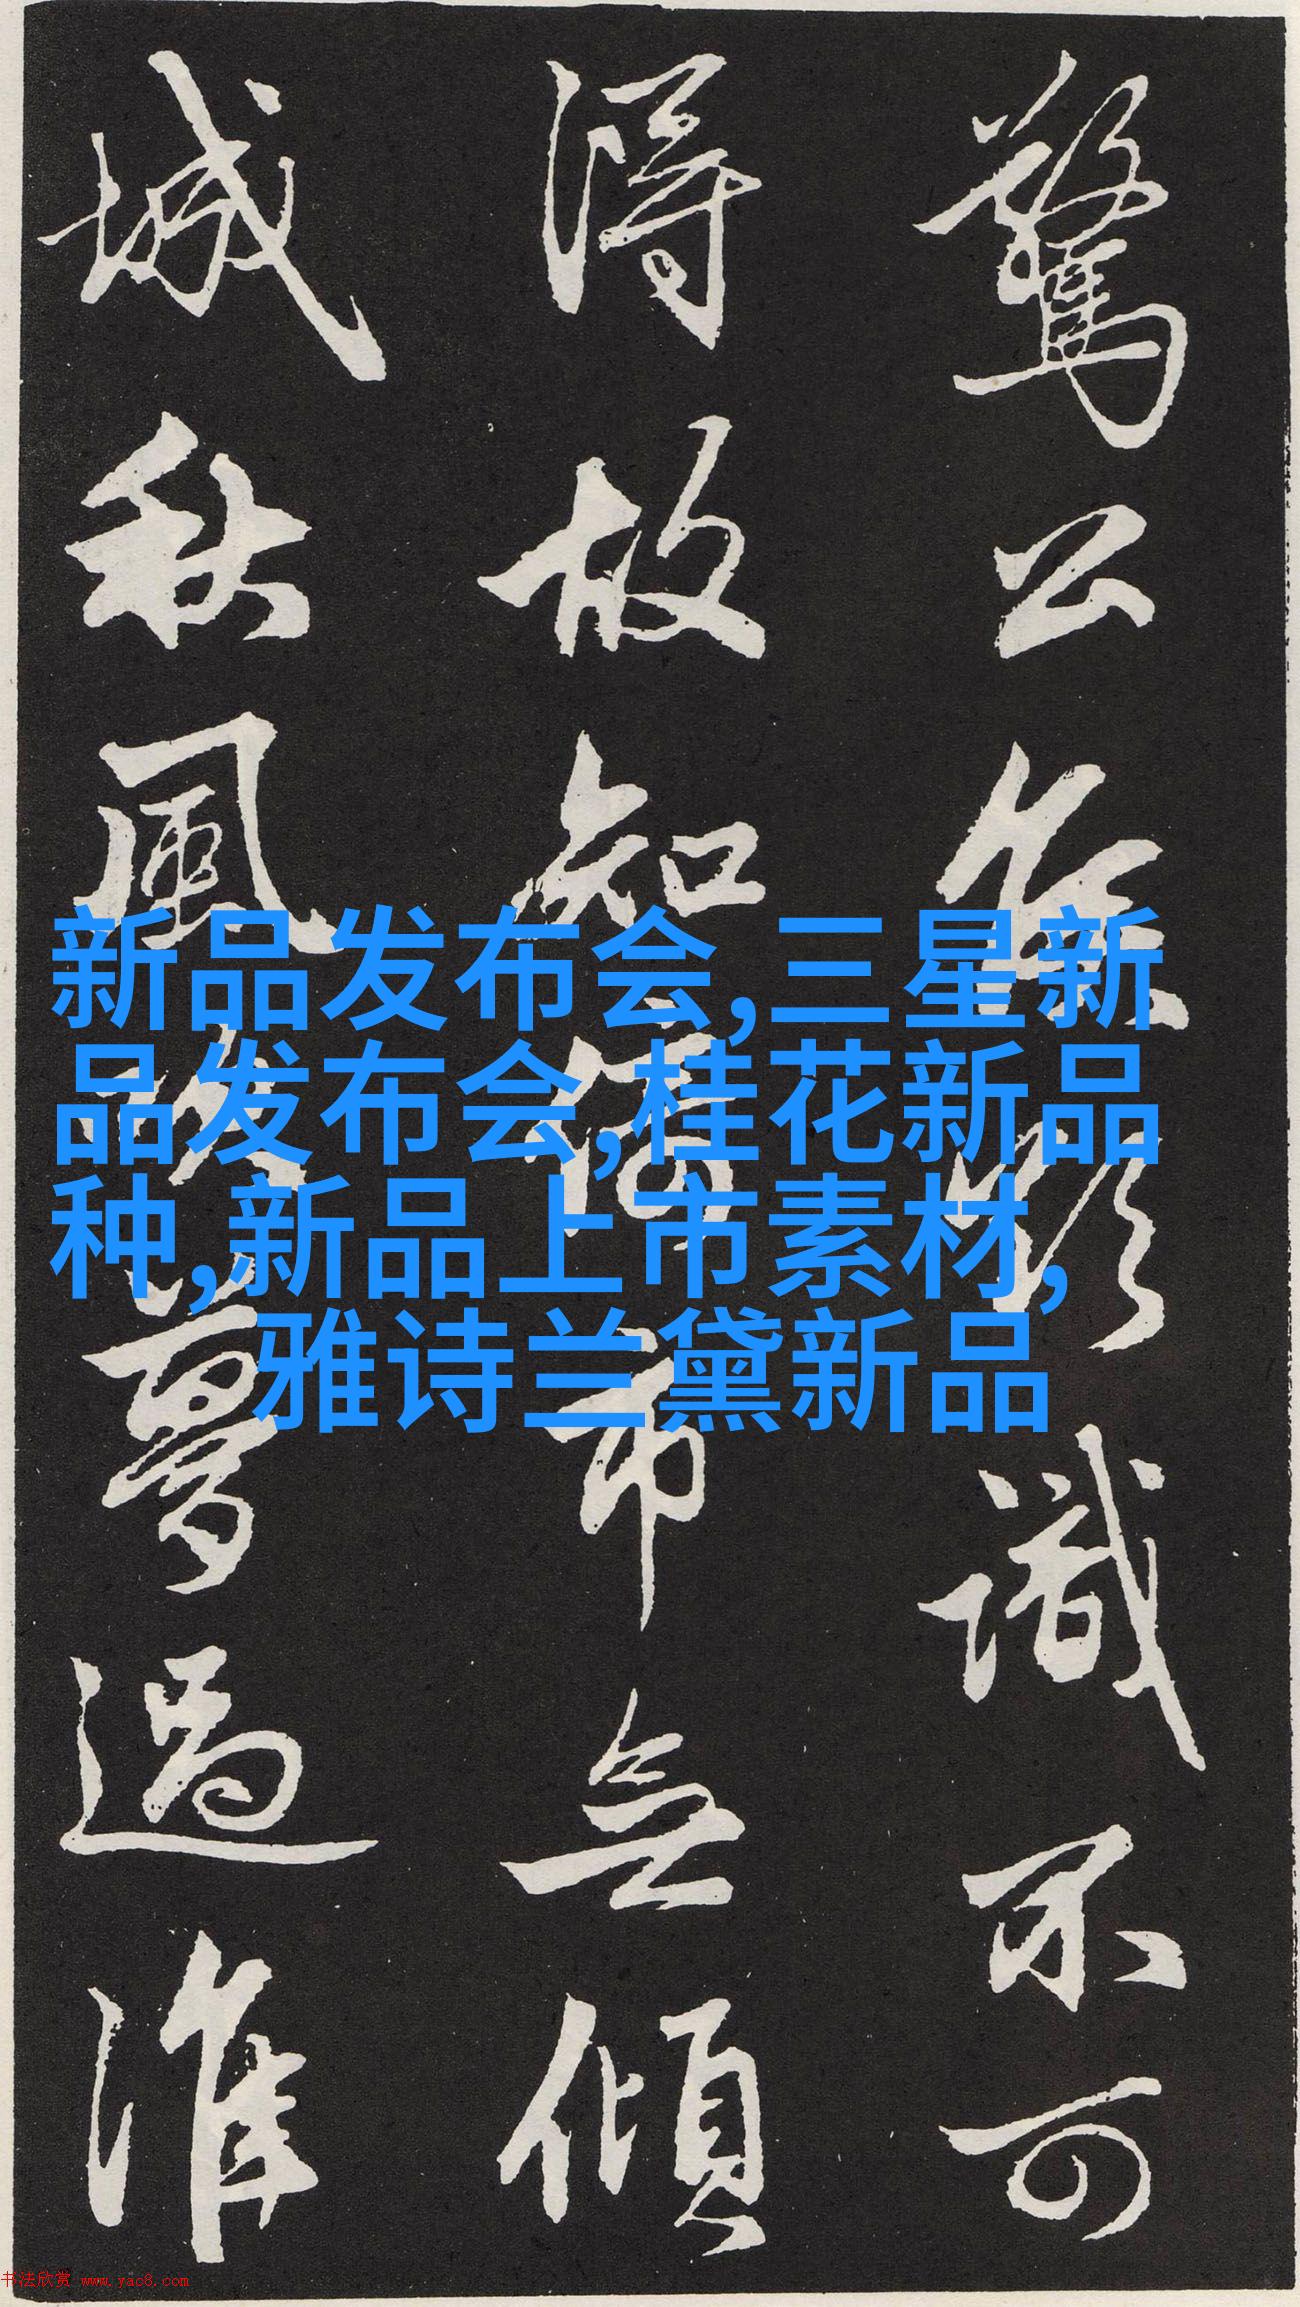 驚公識不可
得故知市無傾
城秋風夢過淮
新品发布会,三星新
品发布会,桂花新品
种,新品上市素材,
雅诗兰黛新品
书法欣赏 www.yac8.com